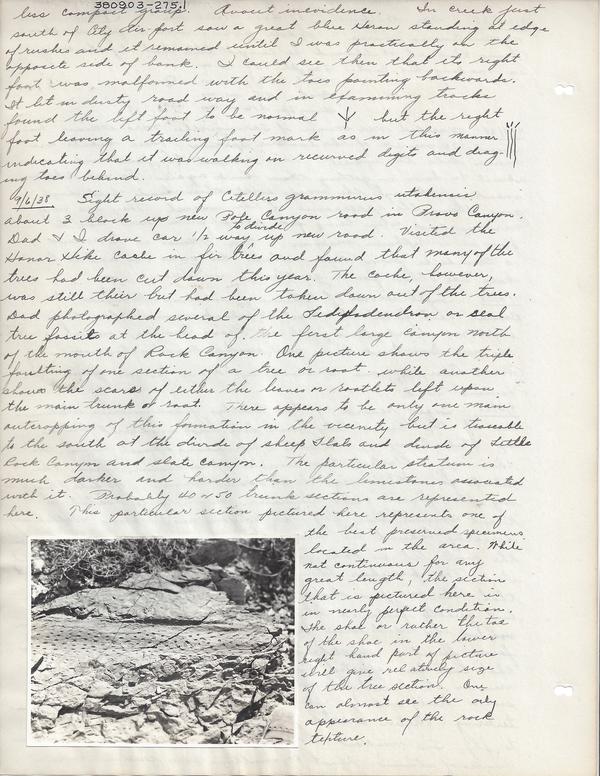 380903-275.1
less compact group. Avout in evidence. In creek just
south of City Air port saw a great blue Heron standing at edge
of rushes and it remained until I was practically on the
opposite side of bank. I could see then that its right
foot was malformed with the toes pointing backwards.
It lit in dusty road way and in examining tracks
found the left foot to be normal but the right
foot leaving a trailing foot mark as in this manner
indicating that it was walking on recurved digits and drag-
ing toes behind.
9/6/38 Sight record of Citellus grammurus utahensis
about 3 block up new Pope Canyon road in Provo Canyon.
to divide
Dad & I drove car 1/2 way up new road. Visited the
Honor Hike cache in fir trees and found that many of the
trees had been cut down this year. The cache, however,
was still their but had been taken down out of the trees.
Dad photographed several of the Lepidodendron or seal
tree fossils at the head of the first large canyon north
of the mouth of Rock Canyon. One picture shows the triple
faulting of one section of a tree or root while another
shows the scars of either the leaves or rootlets left upon
the main trunk or root. There appears to be only one main
outcropping of this formation in the vicinity but is traceable
to the south at the divide of sheep flats and divide of Little
Rock Canyon and slate canyon. The particular stratum is
much darker and harder than the limestones associated
with it. Probably 40 or 50 trunk sections are represented
here. This particular section pictured here represents one of
the best preserved specimens
located in the area. While
not continuous for any
great length, the section
that is pictured here is
in nearly perfect condition.
The shoe or rather the toe
of the shoe in the lower
right hand part of picture
will give relatively size
of the tree section. One
can almost see the oily
appearance of the rock
texture.